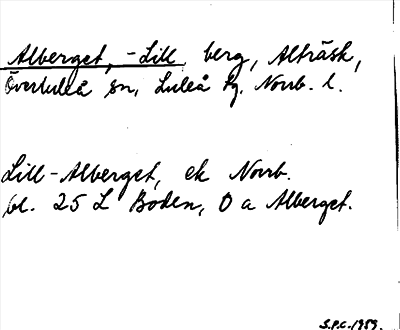 Alberget, -Lill berg, Alträsk,
Överluleå sn, Luleå tg. Norrb. l.
Lill-Alberget, ek Norrb.
bl. 25 L Boden, O a Alberget.
S.P.C. 1959.